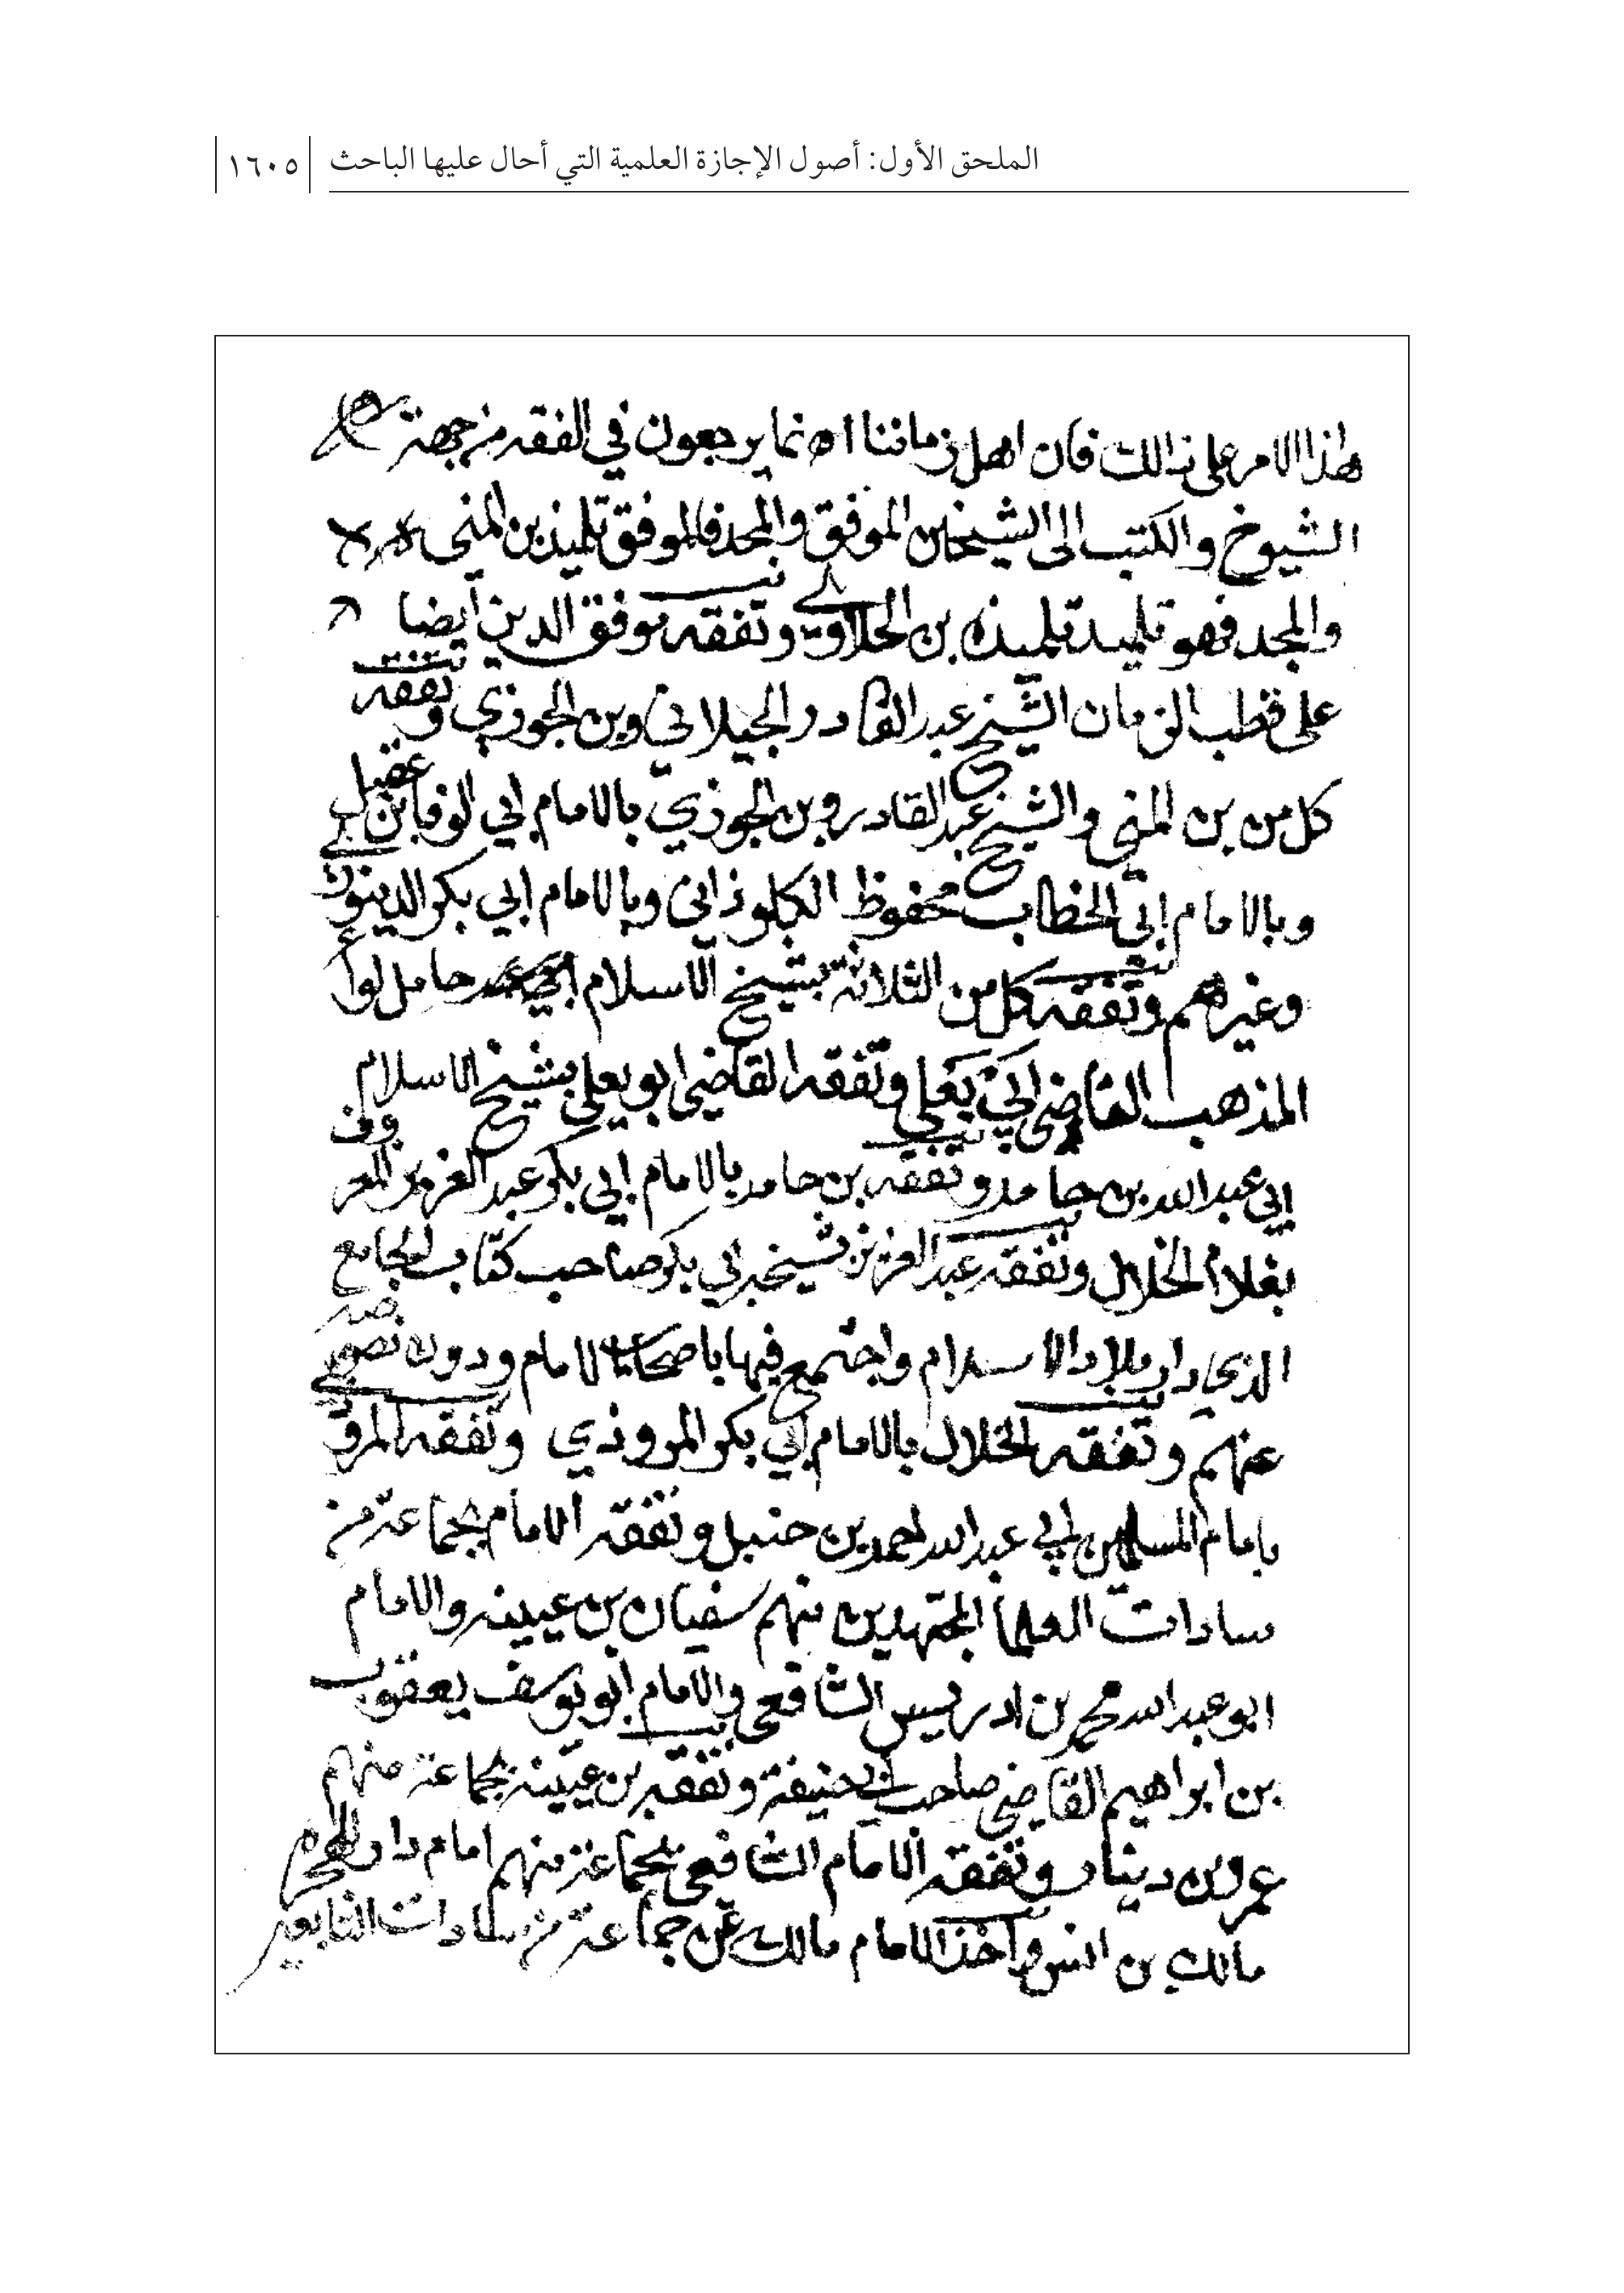 الملحق الأول: أصول الإجازة العلمية التي أحال عليها الباحث
١٦٠٥
هذا الامر على ذالك فان اهل زماننا انما يرجعون في الفقه من جهة
الشيوخ والكتب الى الشيخين الموفق والمجد فالموفق تلميذ بن المني
والمجد فهو تلميد تلميذه بن الحلاوي وتفقه موفق الدين ايضا
على قطب الزمان الشيخ عبد القادر الجيلاني وبن الجوزي وتفقه
كل من بن المني والشيخ عبد القادر وبن الجوزي بالامام ابي الوفا بن عقيل
وبالامام ابي الخطاب محفوظ الكلوذاني وبالامام ابي بكر الدينوري
وغيرهم وتفقه كل من الثلاثة بشيخ الاسلام حامل لواء
المذهب القاضي ابي يعلي وتفقه القاضي ابو يعلي بشيخ الاسلام
ابي عبد الله بن حامد وتفقه بن حامد بالامام ابي بكر عبد العزيز المعروف
بغلام الخلال وتفقه عبد العزيز بشيخه ابي بكر صاحب كتاب الجامع
الذي دار بلاد الاسلام واجتمع فيها باصحاب الامام ودون نصوصه
عنهم وتفقه الخلال بالامام ابي بكر المروذي وتفقه المروذي
بامام المسلمين ابي عبد الله احمد بن حنبل وتفقه الامام بجماعة من
سادات العلما المجتهدين منهم سفيان بن عيينه والامام
ابو عبد الله محمد بن ادريس الشافعي والامام ابو يوسف يعقوب
بن ابراهيم القاضي صاحب ابي حنيفة وتفقه بن عيينه بجماعة منهم
عمرو بن دينار وتفقه الامام الشافعي بجماعة منهم امام دار الهجره
مالك بن انس واخذ الامام مالك عن جماعة من سادات التابعين